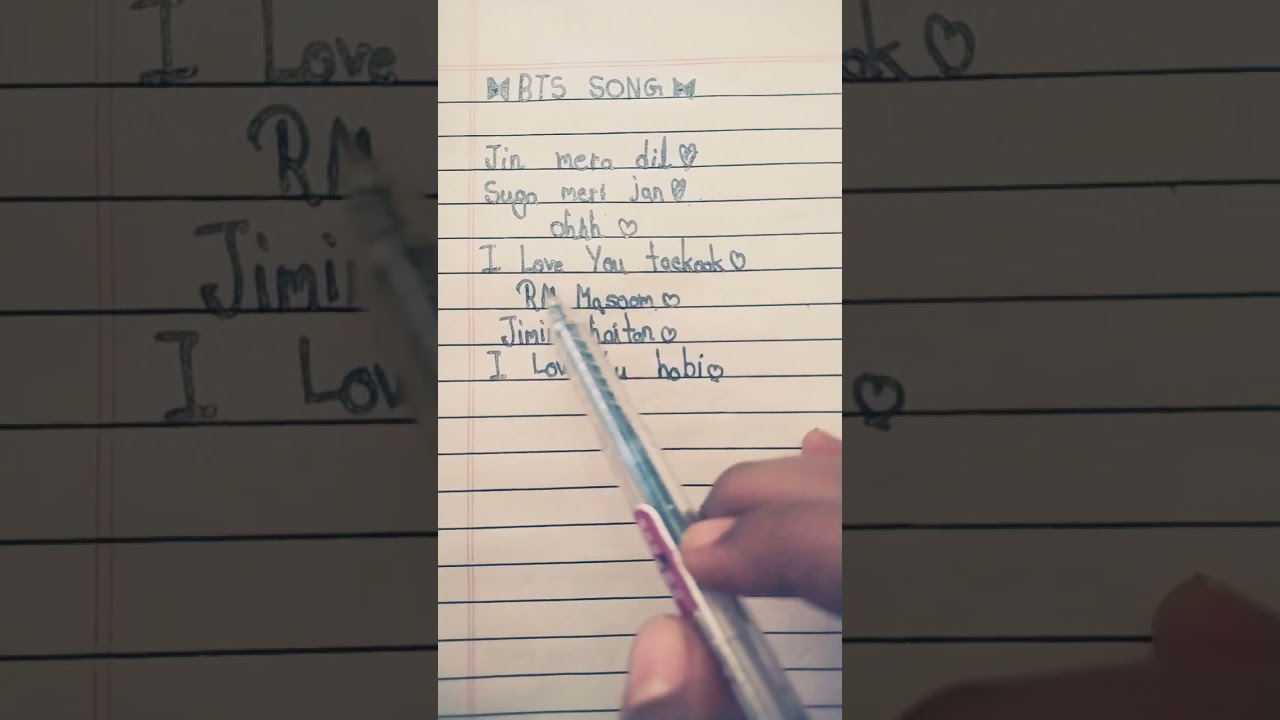 BTS SONG
Jin mera dil
Suga meri jan
ohhh
I Love You taekook
RM Masoom
Jimi haitan
I Lov u hobi